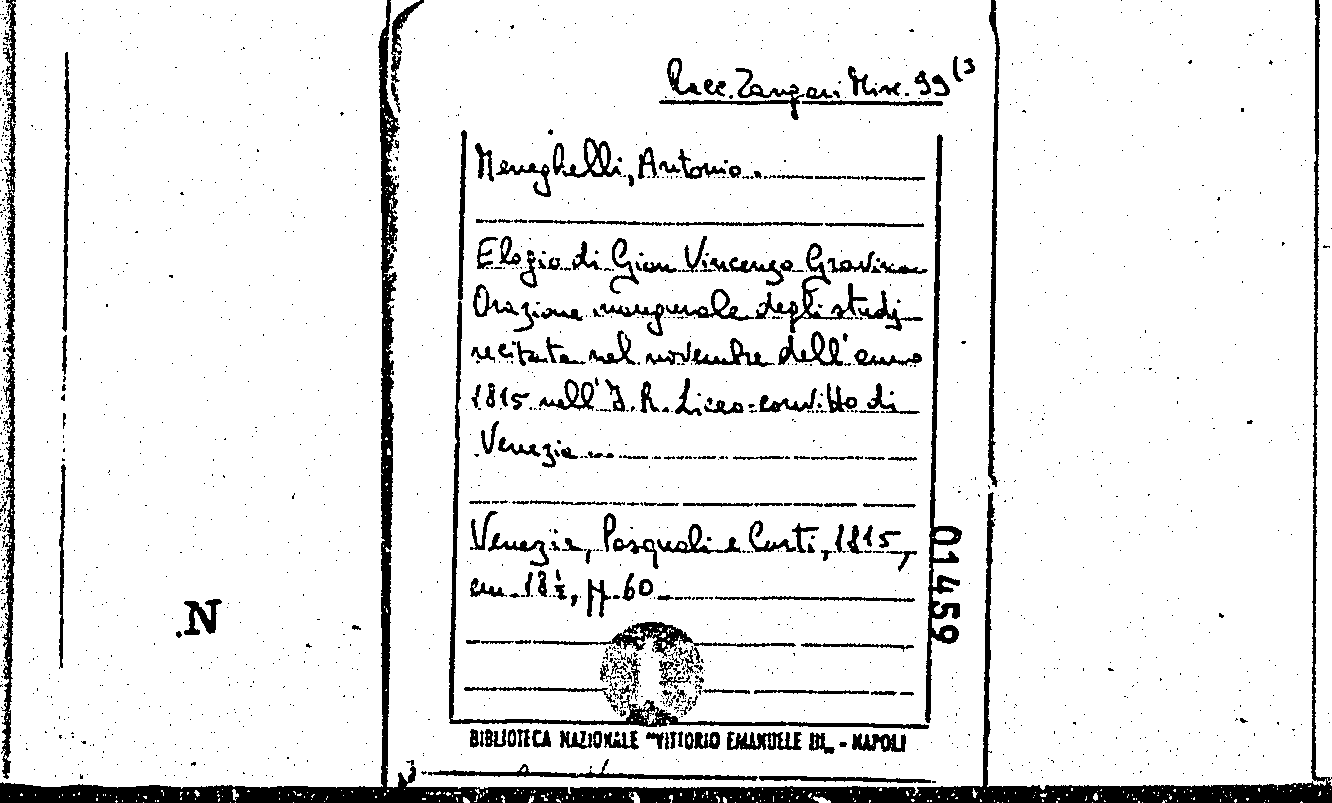 Racc. Zangari Misc. 99 (3
Meneghelli, Antonio.
Elogio di Gian Vincenzo Gravina
Orazione inaugurale degli studj
recitata nel novembre dell'anno
1815 nell'I. R. Liceo-convitto di
Venezia ...
Venezia, Pasquali e Curti, 1815,
cm. 18½, pp. 60
01459
N.
BIBLIOTECA NAZIONALE "VITTORIO EMANUELE III" - NAPOLI